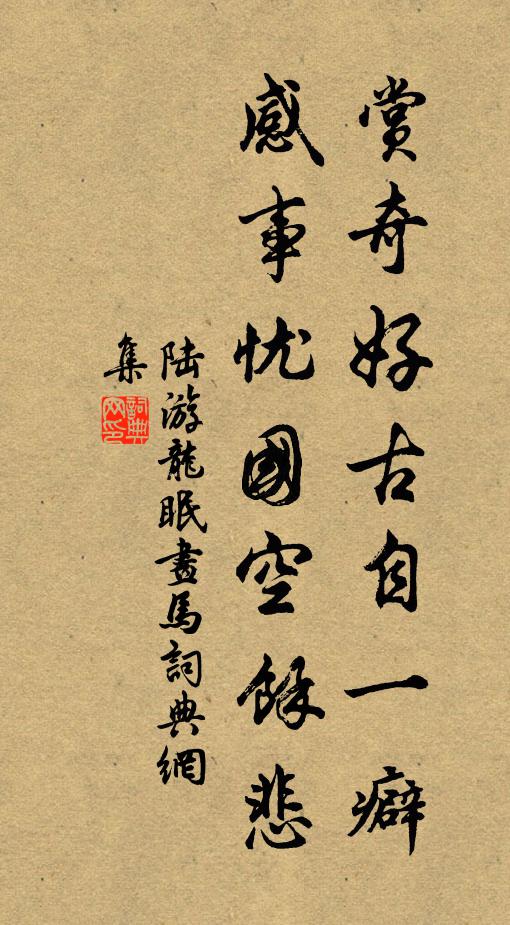 賞奇好古自一癖
感事忧國空餘悲
陆游龍眠畫馬詞典網
集
詞典
网印